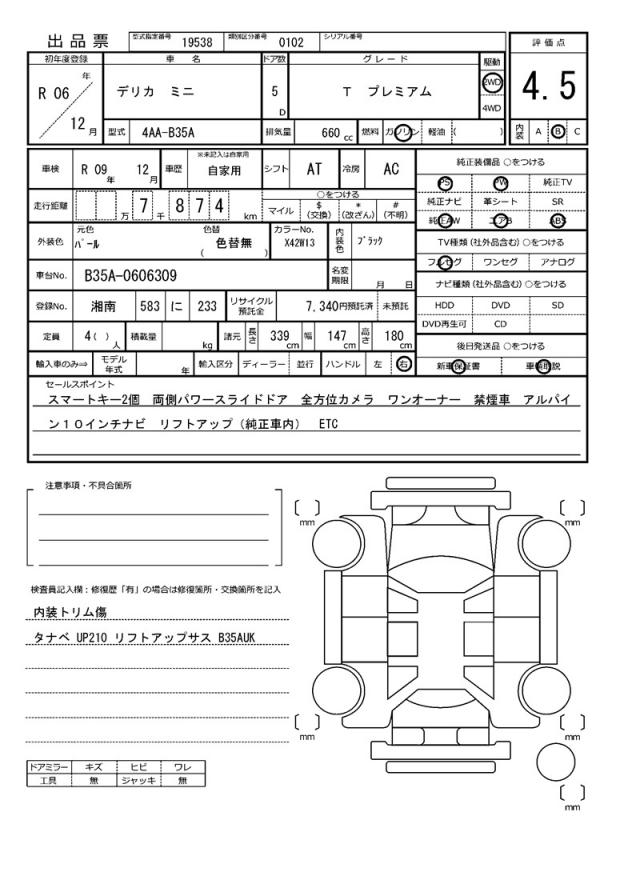 出品票 型式指定番号 19538 類別区分番号 0102 シリアル番号
評価点
4.5
内装 A B C
初年度登録 車名 ドア数 グレード 駆動
R 06 年 12 月 デリカ ミニ 5 D T プレミアム 2WD
4WD
型式 4AA-B35A 排気量 660 cc 燃料 ガソリン 軽油 ( )
車検 R 09 年 12 月 車歴 ※未記入は自家用 自家用 シフト AT 冷房 AC
走行距離 万 7 千 8 7 4 km ○をつける
マイル $(交換) *(改ざん) #(不明)
外装色 元色 パール 色替 色替無 ( ) カラーNo. X42W13 内装色 ブラック
車台No. B35A-0606309 名変期限 月 日
登録No. 湘南 583 に 233 リサイクル預託金 7,340円預託済 未預託
定員 4( )人 積載量 kg 諸元 長さ 339 cm 幅 147 cm 高さ 180 cm
輸入車のみ⇒ モデル年式 年 輸入区分 ディーラー 並行 ハンドル 左 右
純正装備品 ○をつける
PS PW 純正TV
純正ナビ 革シート SR
純正AW エアB ABS
TV種類(社外品含む)○をつける
フルセグ ワンセグ アナログ
ナビ種類(社外品含む)○をつける
HDD DVD SD
DVD再生可 CD
後日発送品 ○をつける
新車保証書 車輌取説
セールスポイント
スマートキー2個 両側パワースライドドア 全方位カメラ ワンオーナー 禁煙車 アルパイ
ン10インチナビ リフトアップ(純正車内) ETC
注意事項・不具合箇所
検査員記入欄:修復歴「有」の場合は修復箇所・交換箇所を記入
内装トリム傷
タナベ UP210 リフトアップサス B35AUK
ドアミラー キズ ヒビ ワレ
工具 無 ジャッキ 無
mm
mm
mm
mm
mm